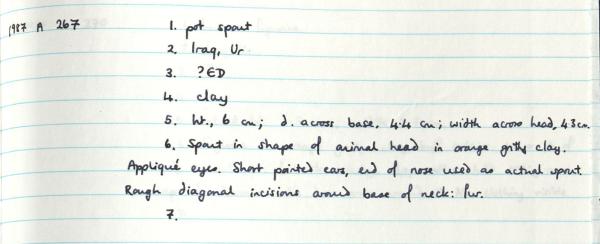 1987 A 267 1. pot spout
2. Iraq, Ur
3. ?ED
4. clay
5. ht., 6 cm; d. across base, 4.4 cm; width across head, 4.3 cm.
6. Spout in shape of animal head in orange gritty clay.
Appliqué eyes. Short pointed ears, end of nose used as actual spout.
Rough diagonal incisions around base of neck: fur.
7.